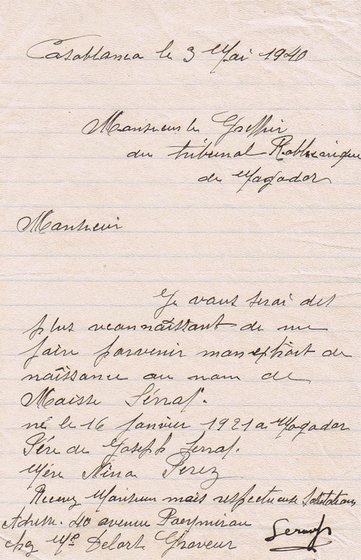 Casablanca le 3 Mai 1940
Monsieur le Greffier
du tribunal Rabbinique
de Mogador
Monsieur
Je vous serai des
plus reconnaissant de me
faire parvenir mon extrait de
naissance au nom de
Moisse Serraf.
né le 16 Janvier 1921 a Mogador
Père de Joseph Serraf.
Mère Nina Perez
Recevez Monsieur mais respectueuse Salutations
Adresse. 40 avenue
chez Me Delort Graveur
Serraf